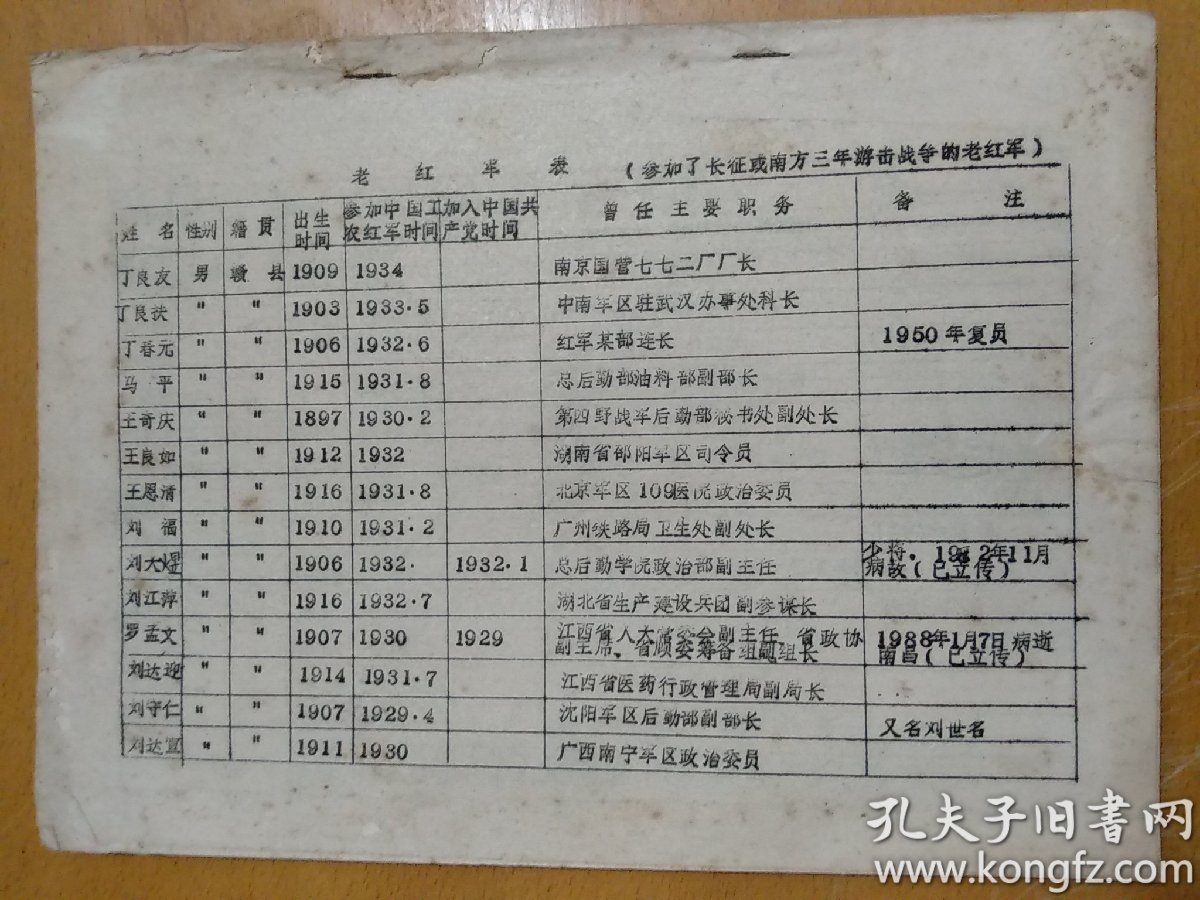 老红军表 (参加了长征或南方三年游击战争的老红军)
姓名 性别 籍贯 出生时间 参加中国工农红军时间 加入中国共产党时间 曾任主要职务 备注
丁良友 男 赣县 1909 1934 南京国营七七二厂厂长
丁良扶 " " 1903 1933.5 中南军区驻武汉办事处科长
丁春元 " " 1906 1932.6 红军某部连长 1950年复员
马平 " " 1915 1931.8 总后勤部油料部副部长
王奇庆 " " 1897 1930.2 第四野战军后勤部秘书处副处长
王良如 " " 1912 1932 湖南省邵阳军区司令员
王恩清 " " 1916 1931.8 北京军区109医院政治委员
刘福 " " 1910 1931.2 广州铁路局卫生处副处长
刘大煜 " " 1906 1932. 1932.1 总后勤学院政治部副主任 少将.
年11月
病故(已立传)
刘江萍 " " 1916 1932.7 湖北省生产建设兵团副参谋长
罗孟文 " " 1907 1930 1929 江西省人大常委会副主任、省政协
副主席、省顾委筹备组副组长 1988年1月7日病逝
南昌(已立传)
刘达迎 " " 1914 1931.7 江西省医药行政管理局副局长
刘守仁 " " 1907 1929.4 沈阳军区后勤部副部长 又名刘世名
刘达宣 " " 1911 1930 广西南宁军区政治委员
孔夫子旧书网
www.kongfz.com